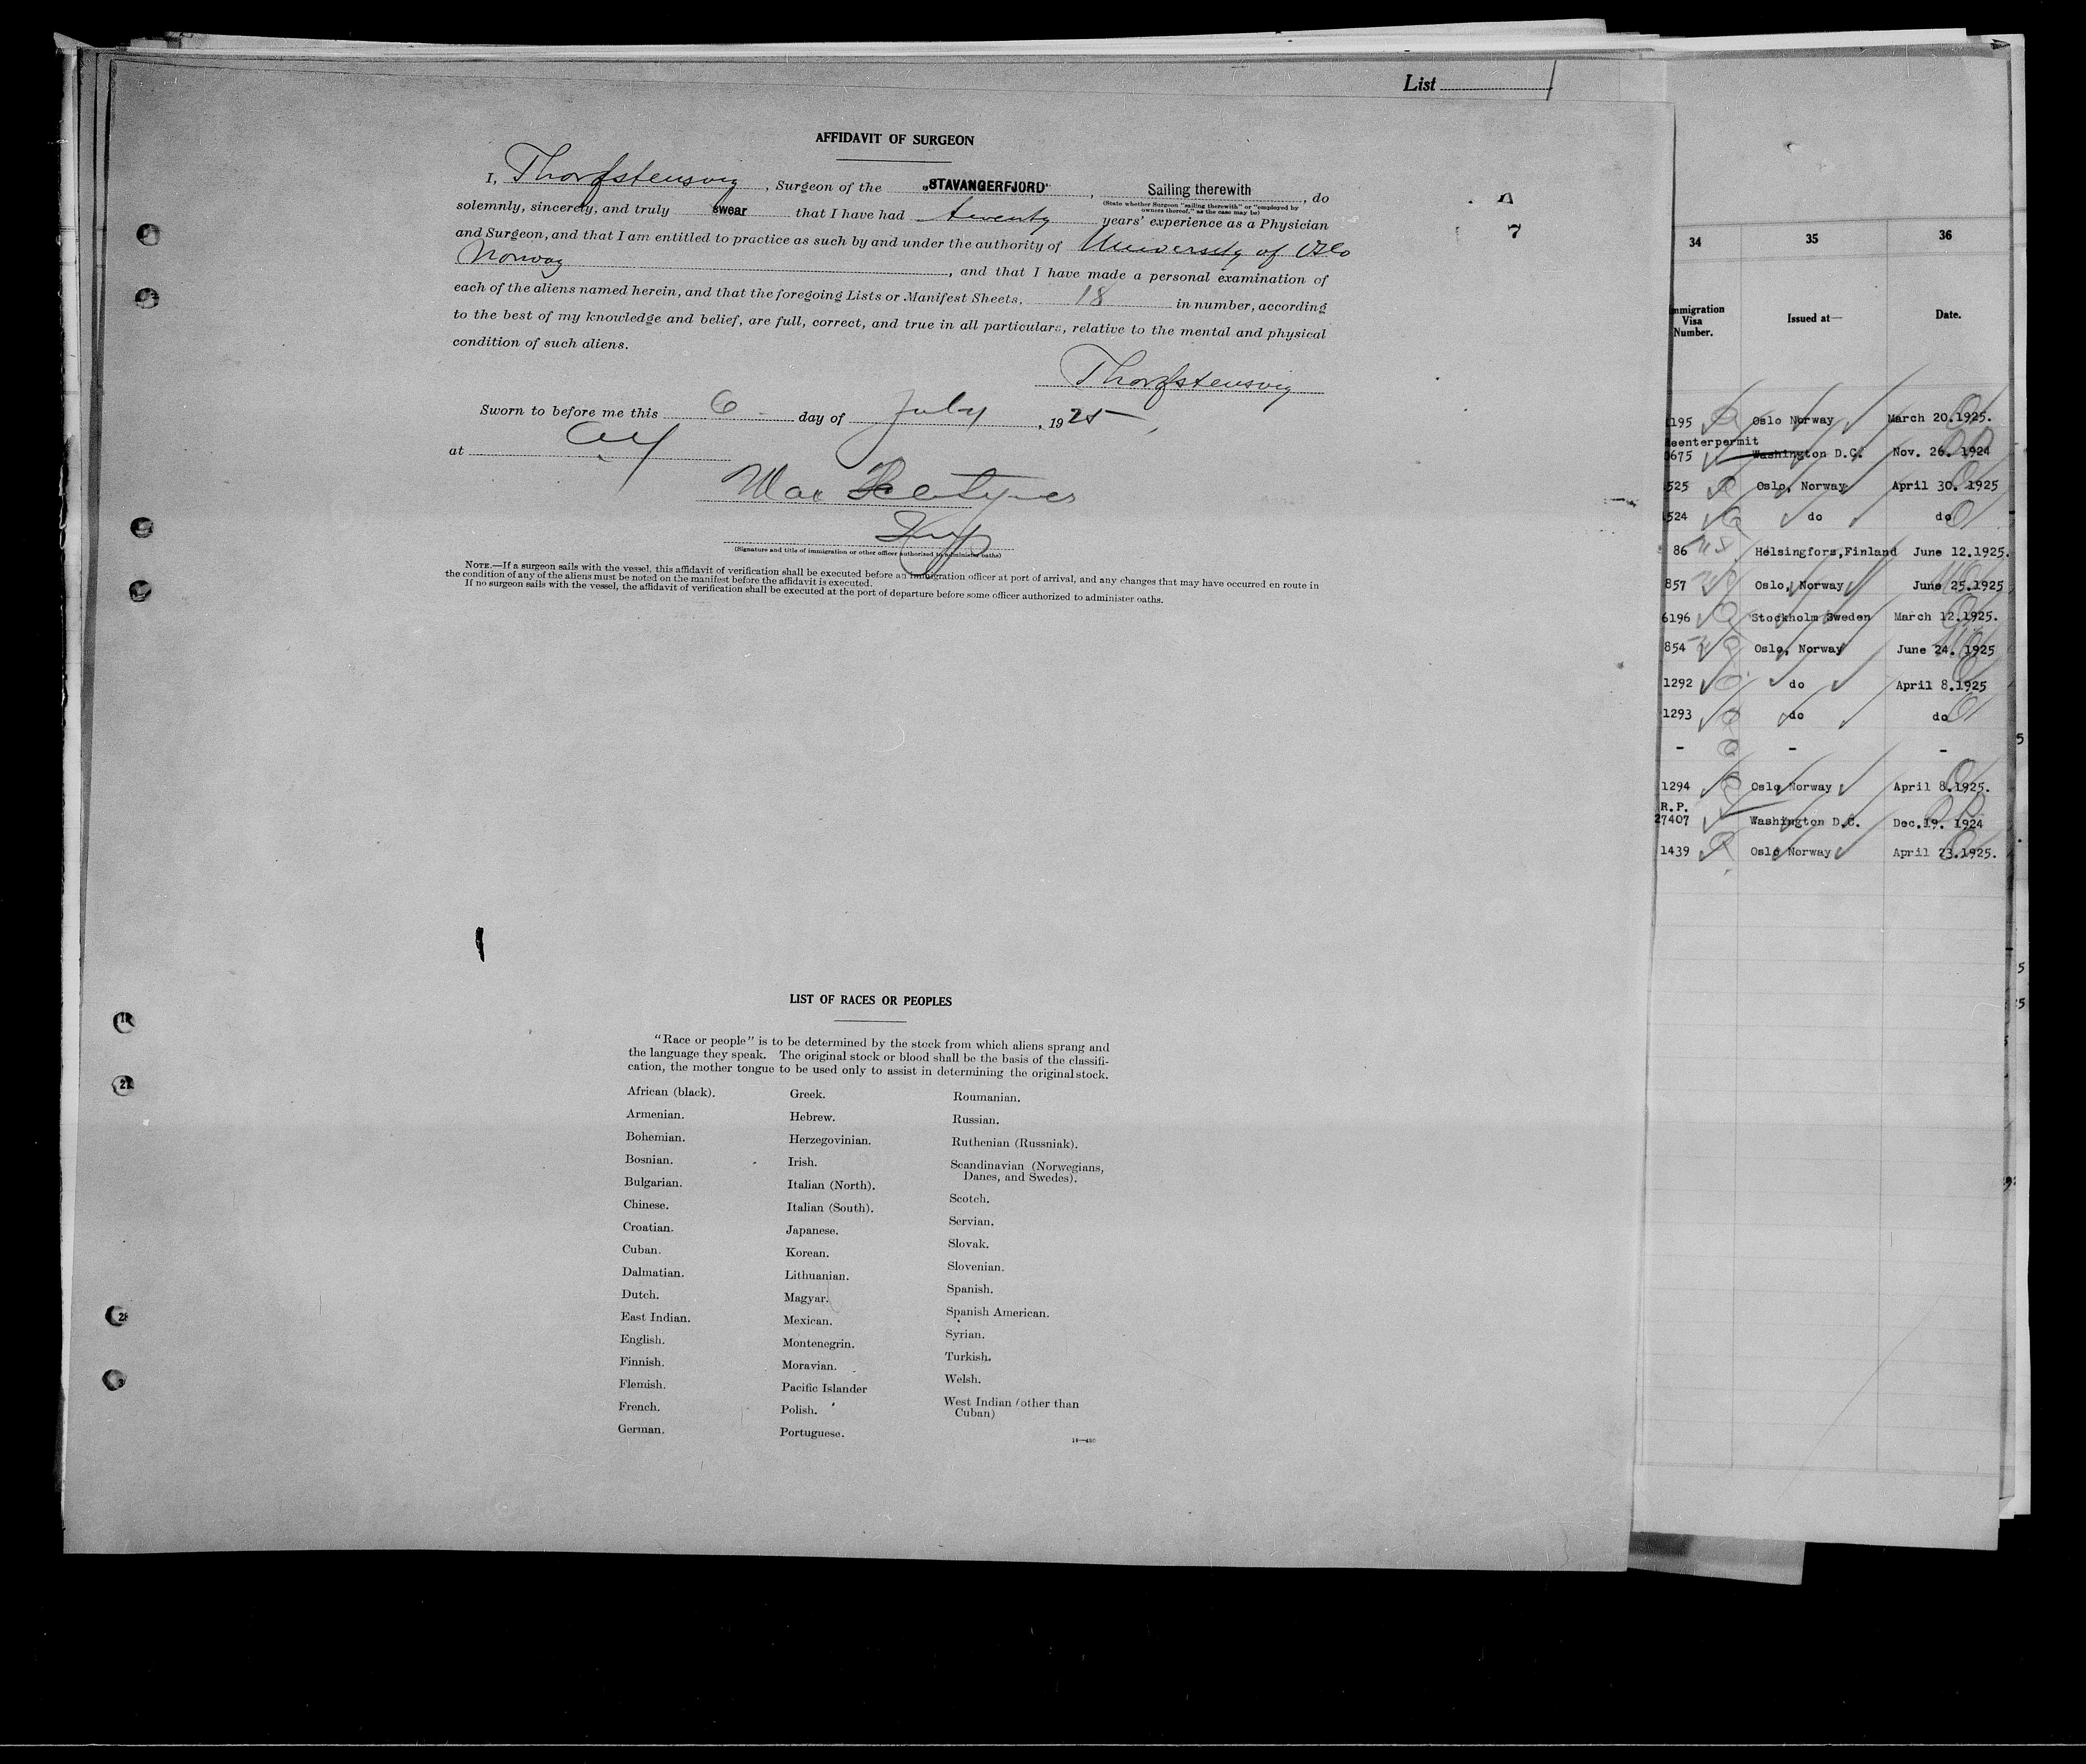 List
AFFIDAVIT OF SURGEON
I, , Surgeon of the „STAVANGERFJORD" , Sailing therewith , do
(State whether Surgeon "sailing therewith" or "employed by
owners thereof," as the case may be)
solemnly, sincerely, and truly swear that I have had twenty years' experience as a Physician
and Surgeon, and that I am entitled to practice as such by and under the authority of University of Oslo
Norway , and that I have made a personal examination of
each of the aliens named herein, and that the foregoing Lists or Manifest Sheets, 18 in number, according
to the best of my knowledge and belief, are full, correct, and true in all particulars, relative to the mental and physical
condition of such aliens.
Sworn to before me this 6 day of July , 1925
at
(Signature and title of immigration or other officer authorized to administer oaths)
NOTE.—If a surgeon sails with the vessel, this affidavit of verification shall be executed before an immigration officer at port of arrival, and any changes that may have occurred en route in
the condition of any of the aliens must be noted on the manifest before the affidavit is executed.
If no surgeon sails with the vessel, the affidavit of verification shall be executed at the port of departure before some officer authorized to administer oaths.
7
LIST OF RACES OR PEOPLES
"Race or people" is to be determined by the stock from which aliens sprang and
the language they speak. The original stock or blood shall be the basis of the classifi-
cation, the mother tongue to be used only to assist in determining the original stock.
African (black).
Armenian.
Bohemian.
Bosnian.
Bulgarian.
Chinese.
Croatian.
Cuban.
Dalmatian.
Dutch.
East Indian.
English.
Finnish.
Flemish.
French.
German.
Greek.
Hebrew.
Herzegovinian.
Irish.
Italian (North).
Italian (South).
Japanese.
Korean.
Lithuanian.
Magyar.
Mexican.
Montenegrin.
Moravian.
Pacific Islander
Polish.
Portuguese.
Roumanian.
Russian.
Ruthenian (Russniak).
Scandinavian (Norwegians,
Danes, and Swedes).
Scotch.
Servian.
Slovak.
Slovenian.
Spanish.
Spanish American.
Syrian.
Turkish.
Welsh.
West Indian (other than
Cuban)
34 35 36
mmigration
Visa
Number.
Issued at—
Date.
195 Oslo Norway March 20.1925.
eenterpermit
675 Washington D.C. Nov. 26. 1924
525 Oslo, Norway April 30. 1925
524 do do
86 Helsingfors,Finland June 12.1925.
857 Oslo, Norway June 25.1925
6196 Stockholm Sweden March 12.1925.
854 Oslo, Norway June 24. 1925
1292 do April 8.1925
1293 do do
- - -
1294 Oslo Norway April 8.1925.
R.P.
27407 Washington D.C. Dec.19. 1924
1439 Oslo Norway April 23.1925.